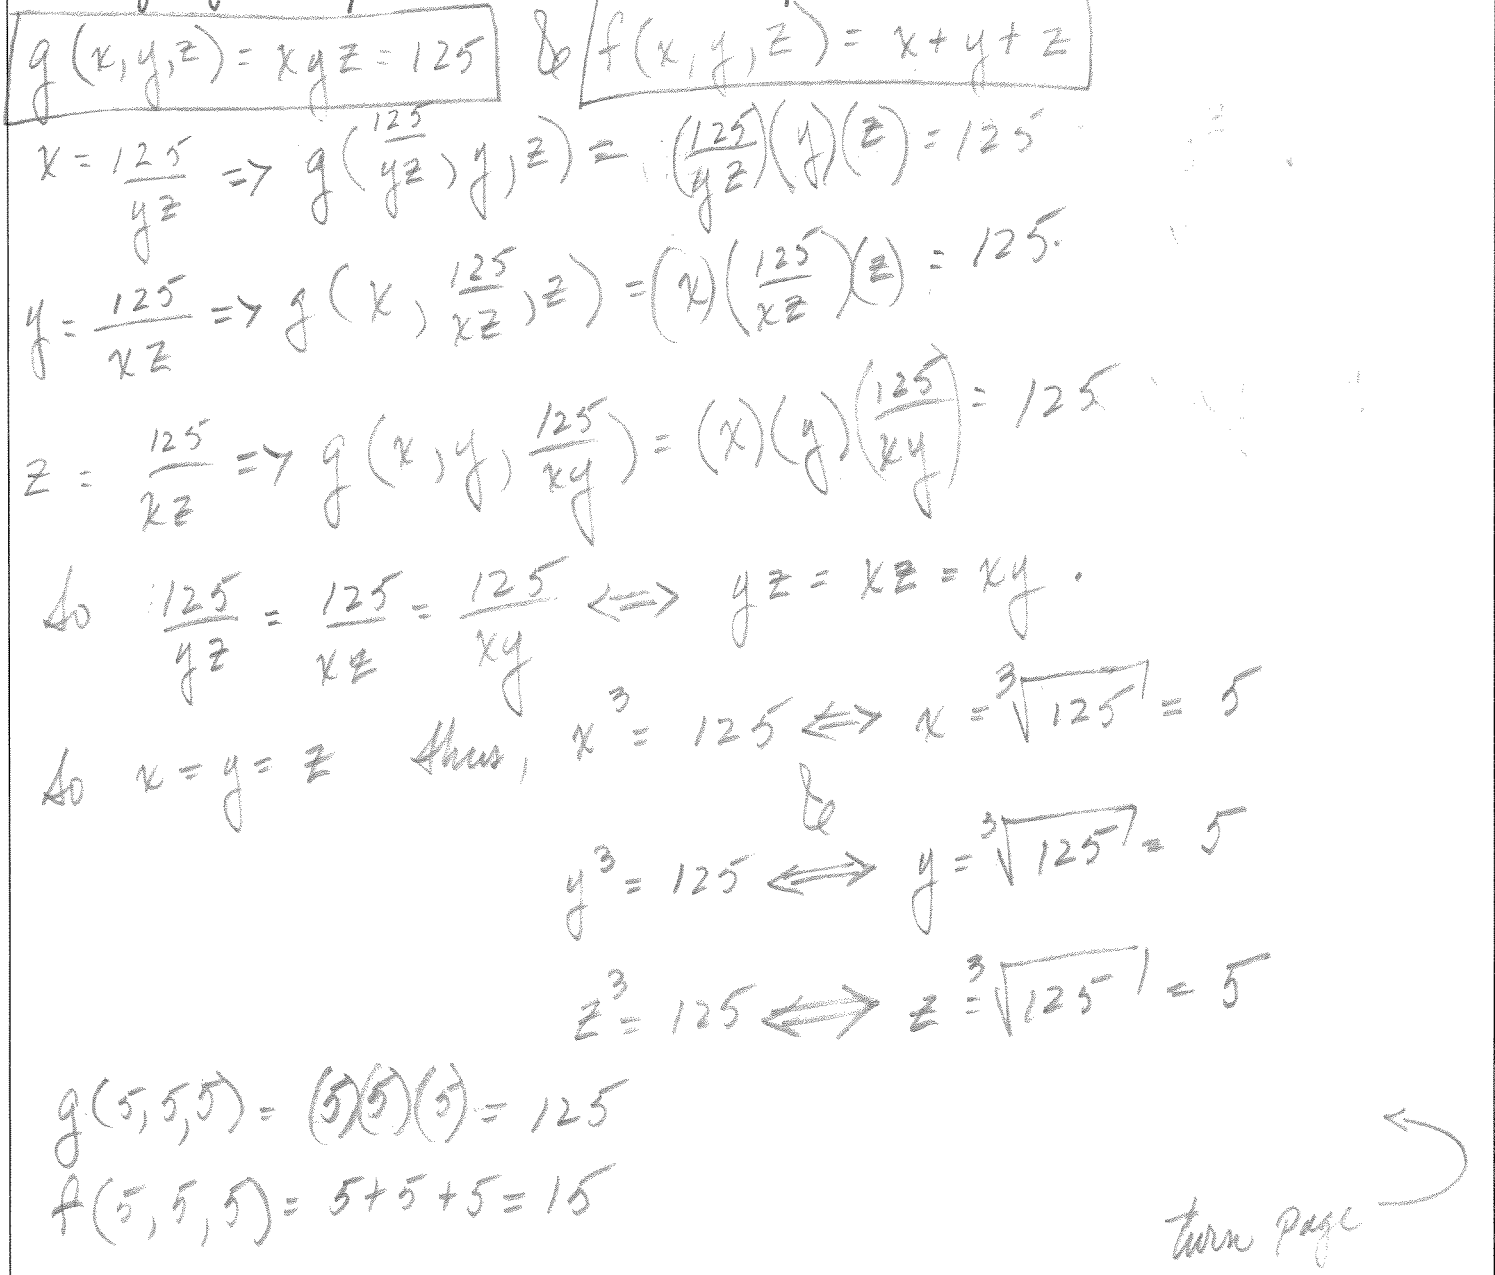 g(x,y,z) = xyz = 125 & f(x,y,z) = x+y+z
x = 125/yz => g(125/yz, y, z) = (125/yz)(y)(z) = 125
y = 125/xz => g(x, 125/xz, z) = (x)(125/xz)(z) = 125.
z = 125/xz => g(x, y, 125/xy) = (x)(y)(125/xy) = 125
So 125/yz = 125/xz = 125/xy <=> yz = xz = xy.
So x = y = z thus, x³ = 125 <=> x = ³√125 = 5
&
y³ = 125 <=> y = ³√125 = 5
z³ = 125 <=> z = ³√125 = 5
g(5,5,5) = (5)(5)(5) = 125
f(5,5,5) = 5+5+5 = 15
turn page